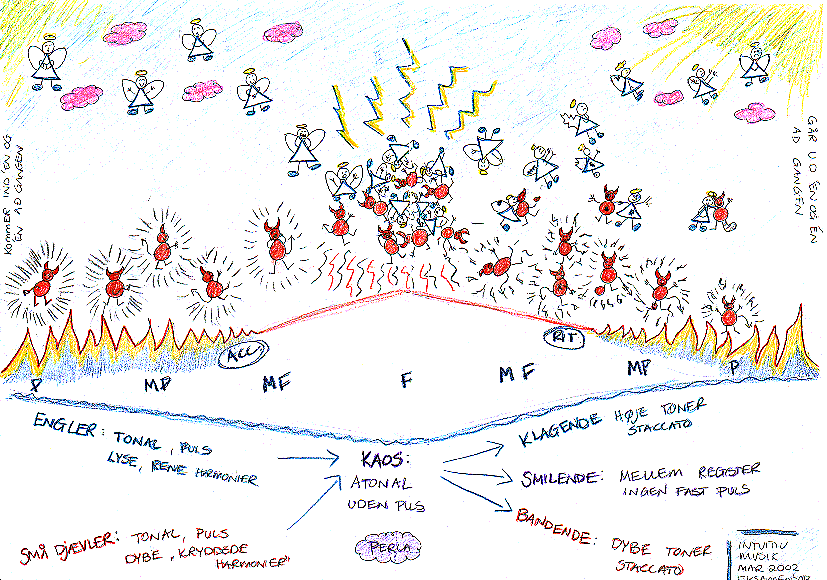 KOMMER IND EN OG
EN AD GANGEN
GÅR UD EN OG EN
AD GANGEN
ACC
RIT
P MP MF F MF MP P
ENGLER: TONAL, PULS
LYSE, RENE HARMONIER
KAOS:
ATONAL
UDEN PULS
KLAGENDE HØJE TONER
STACCATO
SMILENDE: MELLEM REGISTER
INGEN FAST PULS
SMÅ DJÆVLER: TONAL, PULS
DYBE, KRYDDEDE
HARMONIER"
BANDENDE: DYBE TONER
STACCATO
PERLA
INTUITIV
MUSIK
MAR 2002